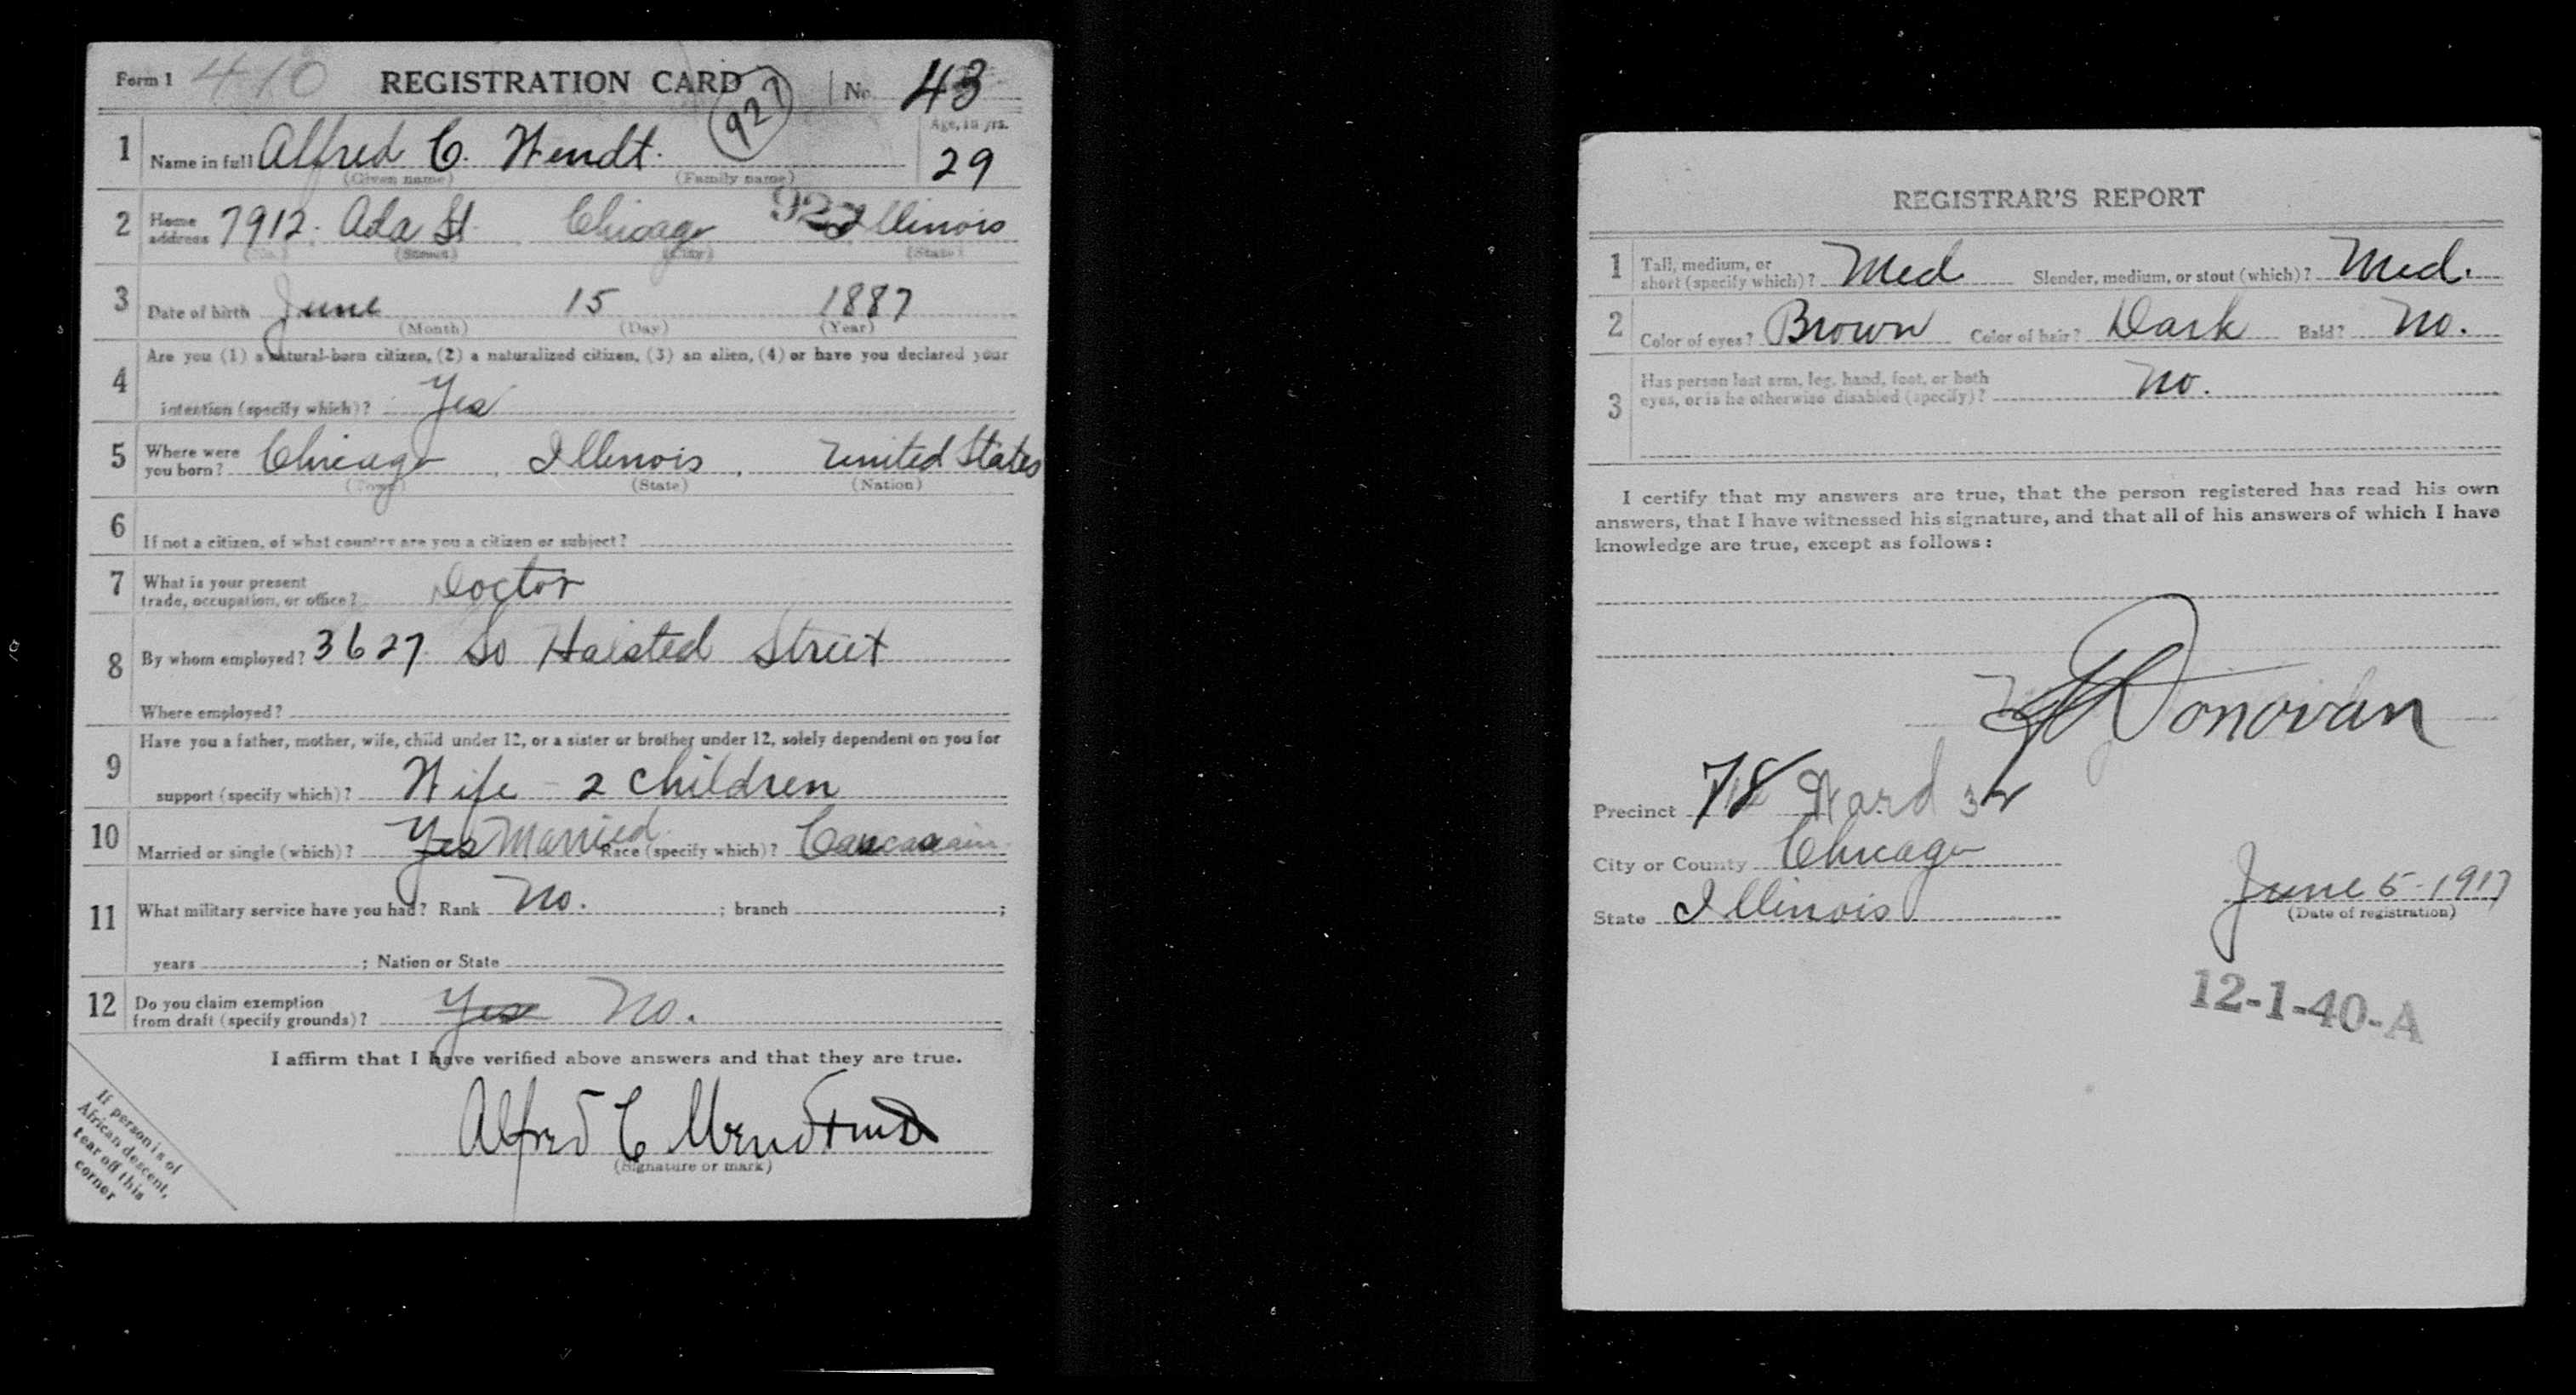 Form 1 410 REGISTRATION CARD No. 43
927
Age, in yrs.
1 Name in full Alfred C. Wendt. 29
(Given name) (Family name)
922
2 Home address 7912. Ada St. Chicago Illinois
(No.) (Street) (City) (State)
3 Date of birth June 15 1887
(Month) (Day) (Year)
Are you (1) a natural-born citizen, (2) a naturalized citizen, (3) an alien, (4) or have you declared your
4 intention (specify which)? Yes
5 Where were you born? Chicago, Illinois, United States
(Town) (State) (Nation)
6 If not a citizen, of what country are you a citizen or subject?
7 What is your present trade, occupation, or office? Doctor
8 By whom employed? 3627 So Halsted Street
Where employed?
9 Have you a father, mother, wife, child under 12, or a sister or brother under 12, solely dependent on you for
support (specify which)? Wife - 2 children
10 Married or single (which)? Yes Married Race (specify which)? Caucasain
11 What military service have you had? Rank No. ; branch ;
years ; Nation or State
12 Do you claim exemption from draft (specify grounds)? Yes No.
I affirm that I have verified above answers and that they are true.
Alfred C Wendt
(Signature or mark)
If person is of
African descent,
tear off this
corner
REGISTRAR'S REPORT
1 Tall, medium, or short (specify which)? Med Slender, medium, or stout (which)? Med.
2 Color of eyes? Brown Color of hair? Dark Bald? No.
3 Has person lost arm, leg, hand, foot, or both eyes, or is he otherwise disabled (specify)? No.
I certify that my answers are true, that the person registered has read his own
answers, that I have witnessed his signature, and that all of his answers of which I have
knowledge are true, except as follows:
Donovan
Precinct 78 Ward 32
City or County Chicago
State Illinois
June 5-1917
(Date of registration)
12-1-40-A